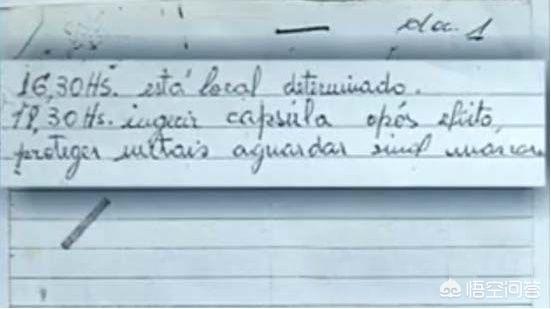 da. 1
16,30 Hs. está local determinado.
18,30 Hs. ingerir capsúla após efeito,
proteger metais aguardar sinal mascara
悟空问答